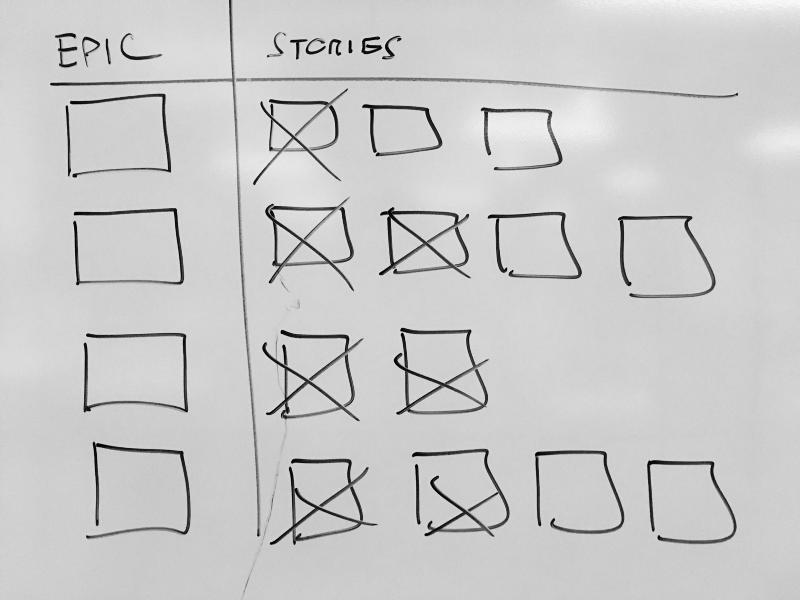 EPIC STORIES